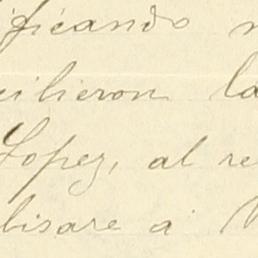 ificando
cilieron la
Lopez, al re
bisare a